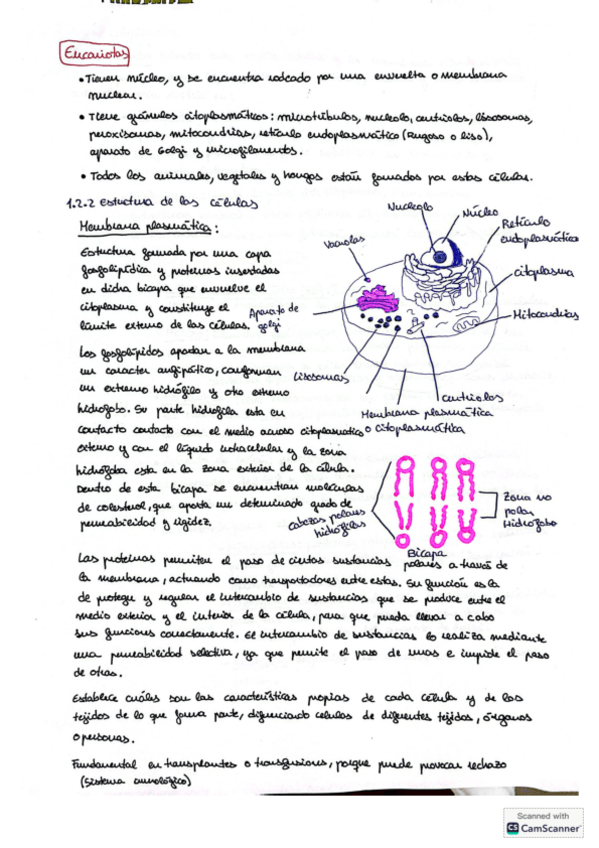 Eucariotas
• Tienen núcleo, y se encuentra rodeado por una envuelta o membrana
nuclear.
• Tiene gránulos citoplasmáticos: microtúbulos, nucleolo, centriolos, lisosomas,
peroxisomas, mitocondrias, retículo endoplasmático (Rugoso o liso),
aparato de Golgi y microfilamentos.
• Todos los animales, vegetales y hongos están formados por estas células.
1.2.2 Estructura de las células
Membrana plasmática:
Estructura formada por una capa
fosfolipídica y proteinas insertadas
en dicha bicapa que envuelve el
citoplasma y constituye el
límite externo de las células.
Nucleolo
Núcleo
Retículo
endoplasmático
Vacuolas
citoplasma
Mitocondrias
Aparato de
golgi
Lisosomas
centriolos
Membrana plasmática
o citoplasmática
Los fosfolípidos aportan a la membrana
un caracter anfipático, conforman
un extremo hidrófilo y otro extremo
hidrofobo. Su parte hidrofila esta en
contacto contacto con el medio acuoso citoplasmatico
externo y con el líquido extracelular y la zona
hidrófoba esta en la zona exterior de la célula.
Dentro de esta bicapa se encuentran moléculas
de colesterol, que aporta un determinado grado de
permeabilidad y rigidez.
cabezas polares
hidrófilas
Zona no
polar
Hidrofoba
Bicapa
Las proteínas permiten el paso de ciertas sustancias polares a través de
la membrana, actuando como transportadores entre estas. Su función es la
de proteger y regular el intercambio de sustancias que se produce entre el
medio exterior y el interior de la célula, para que pueda llevar a cabo
sus funciones correctamente. El intercambio de sustancias lo realiza mediante
una permeabilidad selectiva, ya que permite el paso de unas e impide el paso
de otras.
Establece cuáles son las características propias de cada célula y de los
tejidos de lo que forma parte, diferenciando celulas de diferentes tejidos, órganos
o personas.
Fundamental en transplantes o transfusiones, porque puede provocar rechazo
(Sistema inmunológico)
Scanned with
CS CamScanner